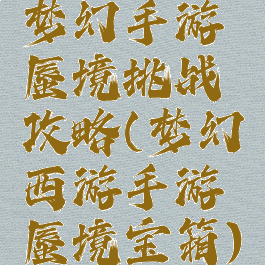 梦幻手游
蜃境挑战
攻略(梦幻
西游手游
蜃境宝箱)